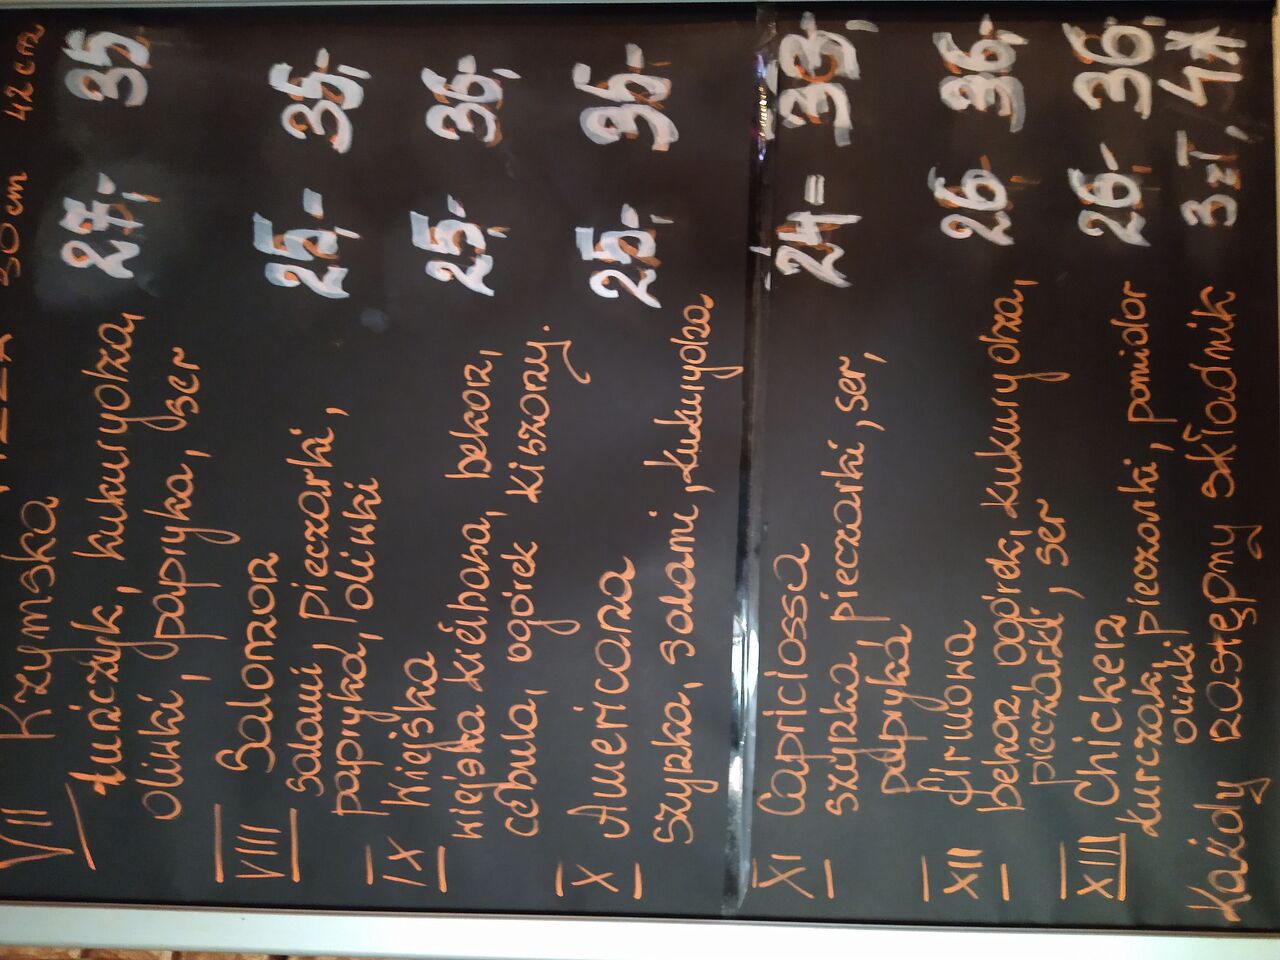 PIZZA 30cm 42cm
VII Krzymska
tuńczyk, kukurydza, 27,- 35
oliwki, papryka, ser
VIII Salomon
salami, pieczarki, 25,- 35,-
papryka, oliwki
IX Wiejska
wiejska kiełbasa, bekon, 25,- 36,-
cebula, ogórek kiszony.
X Americana 25,- 35,-
szynka, salami, kukurydza
XI Capriciossa
szynka, pieczarki, ser, 24= 33,
papryka
XII Firmowa
bekon, ogórek, kukurydza, 26,- 36,-
pieczarki, ser
XIII Chicken
kurczak, pieczarki, pomidor 26,- 36,
oliwki
Każdy następny składnik 3zł, 4zł